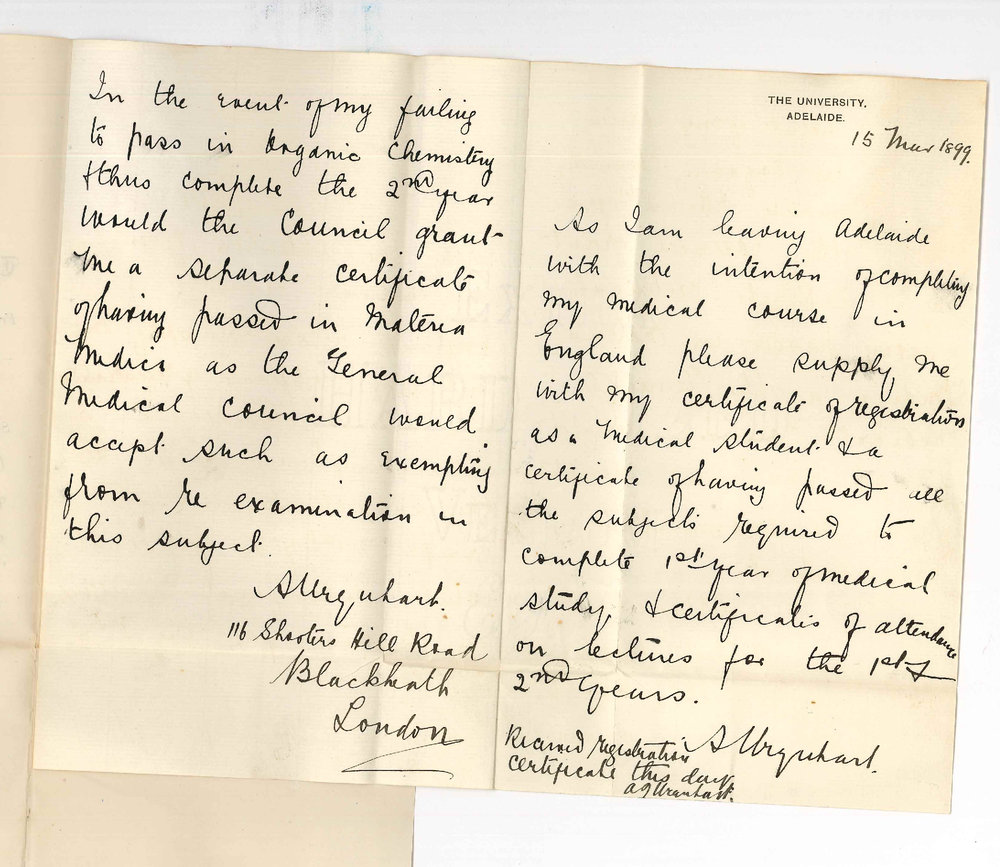 THE UNIVERSITY.
ADELAIDE.
15 Mar 1899.
As I am leaving Adelaide
with the intention of completing
my medical course in
England please supply me
with my certificate of registration
as a medical student & a
certificate of having passed all
the subjects required to
complete 1st year of medical
study, & certificates of attendance
on lectures for the 1st &
2nd years.
A Urquhart.
Received registration
certificate this day.
A J Urquhart.
In the event of my failing
to pass in Organic Chemistery
& thus complete the 2nd year
would the Council grant
me a separate certificate
of having passed in Materia
Medica as the General
Medical Council would
accept such as exempting
from re examination in
this subject.
A Urquhart.
116 Shooters Hill Road
Blackheath
London